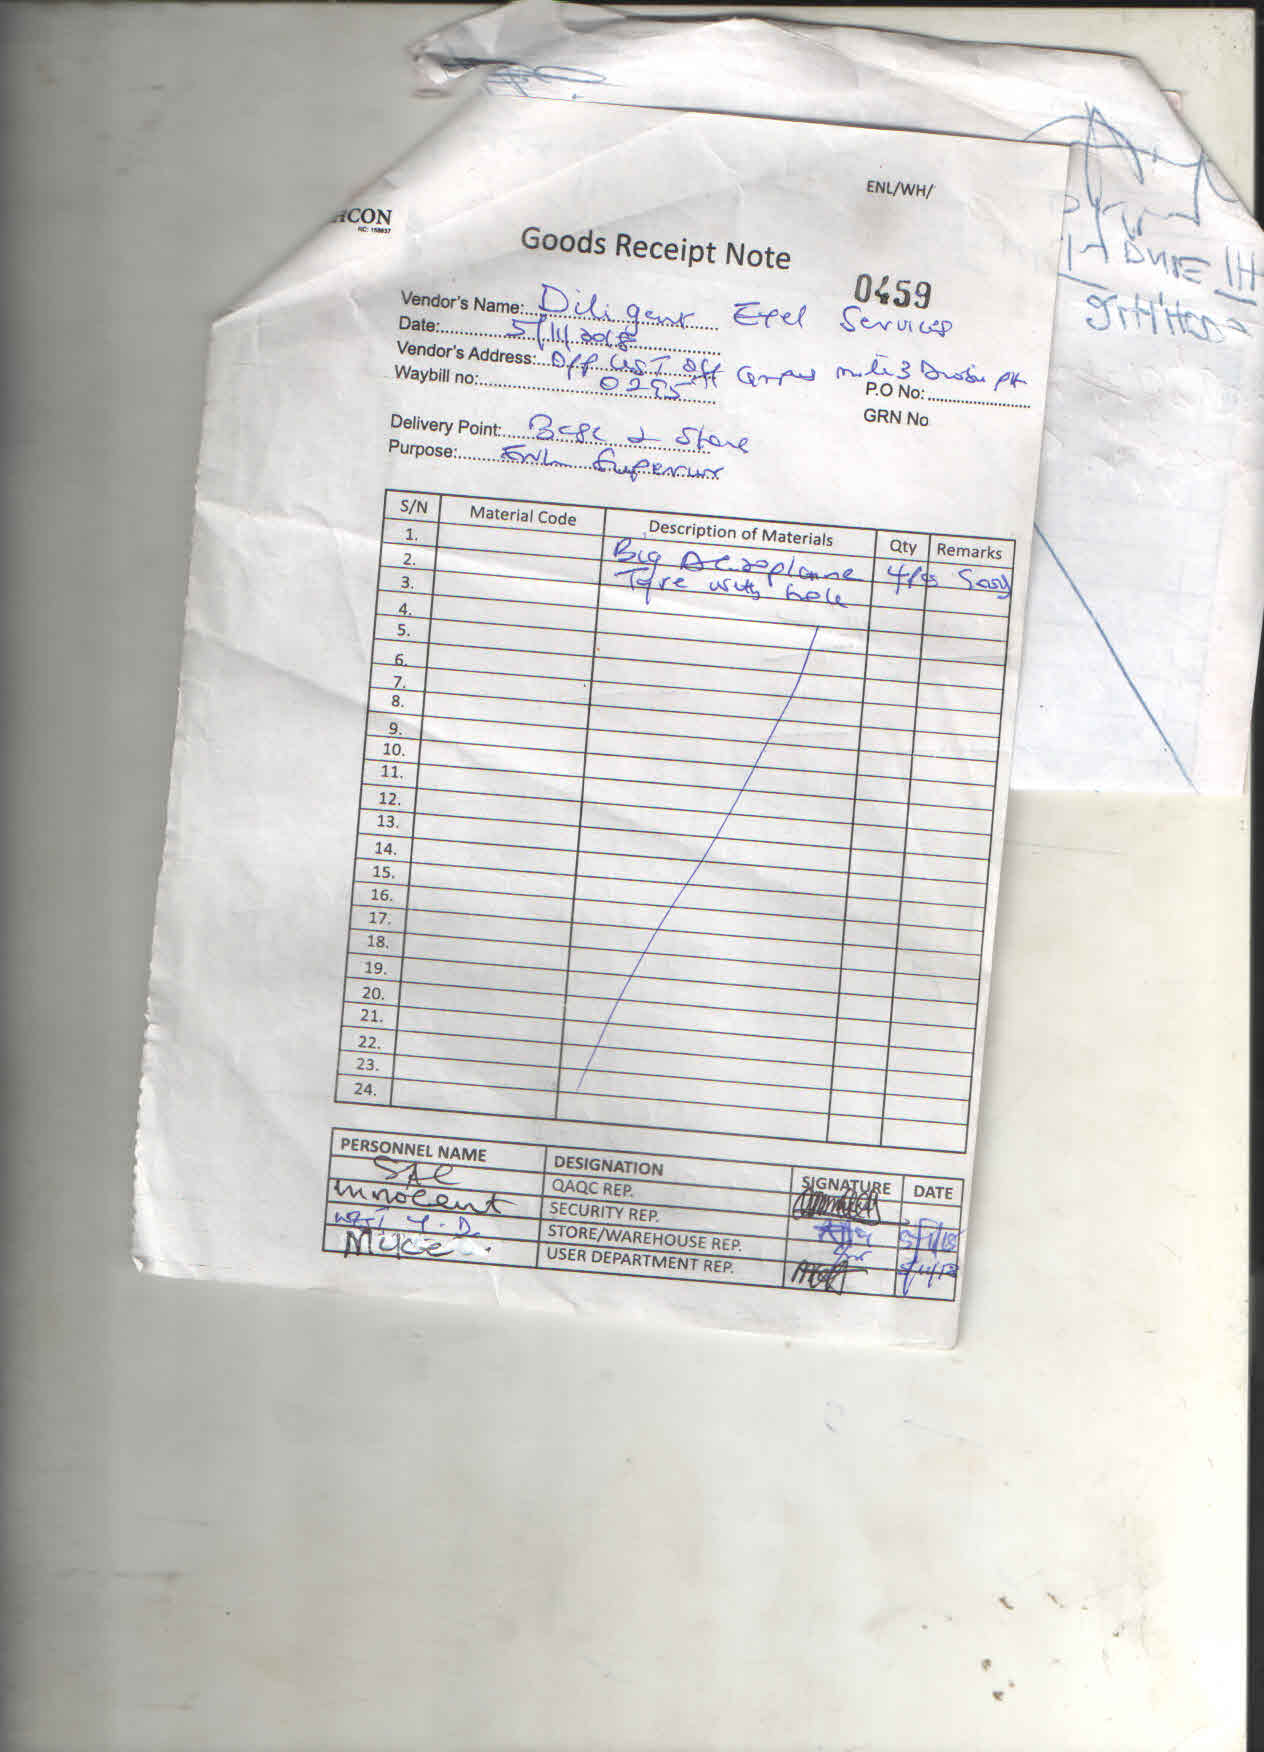 ENL/WH/
ACON
RC: 159837
Goods Receipt Note
0459
Vendor's Name: Diligent Exel Services
Date: 5/11/2018
Vendor's Address: Off UST Off Campus mile 3 Diobu PH
Waybill no: 0295
P.O No:
GRN No
Delivery Point: Base & Store
Purpose: ENL Superior
S/N Material Code Description of Materials Qty Remarks
1. Big Aeroplane 4Pcs
2. Tyre with hole
3.
4.
5.
6.
7.
8.
9.
10.
11.
12.
13.
14.
15.
16.
17.
18.
19.
20.
21.
22.
23.
24.
PERSONNEL NAME DESIGNATION SIGNATURE DATE
QAQC REP.
Innocent SECURITY REP. 5/11/18
STORE/WAREHOUSE REP.
USER DEPARTMENT REP. 5/11/18